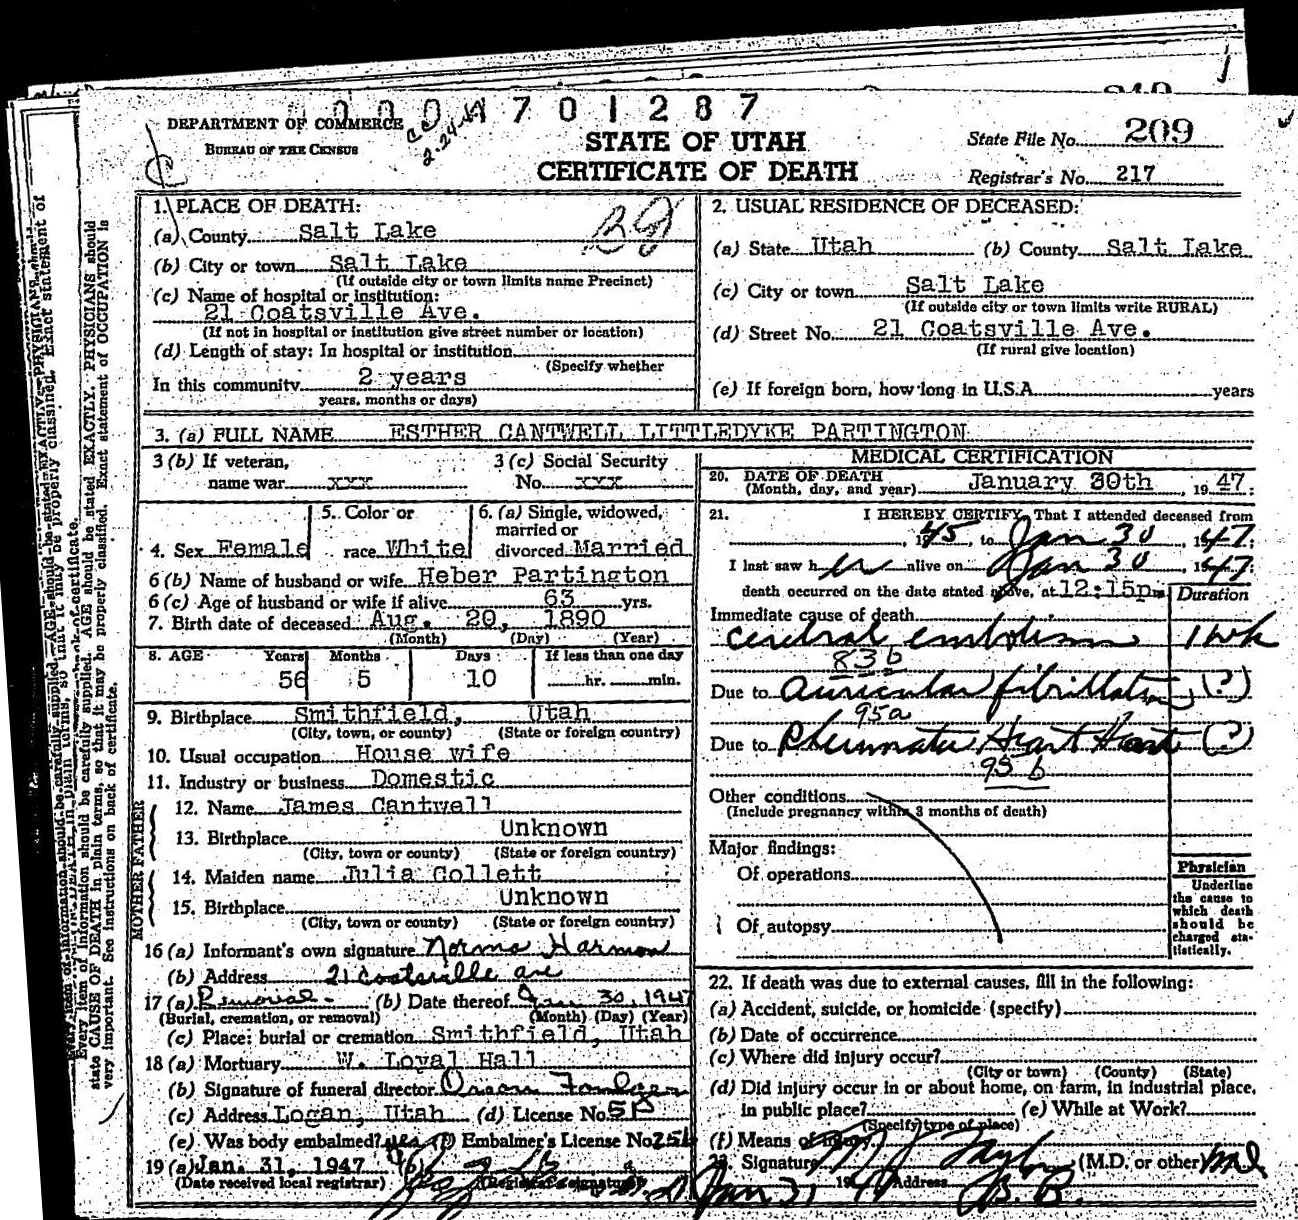 0004701287
DEPARTMENT OF COMMERCE
BUREAU OF THE CENSUS
2-24-47
STATE OF UTAH
CERTIFICATE OF DEATH
State File No. 209
Registrar's No. 217
1. PLACE OF DEATH:
(a) County Salt Lake
(b) City or town Salt Lake
(If outside city or town limits name Precinct)
(c) Name of hospital or institution:
21 Coatsville Ave.
(If not in hospital or institution give street number or location)
(d) Length of stay: In hospital or institution
(Specify whether
In this community 2 years
years, months or days)
2. USUAL RESIDENCE OF DECEASED:
(a) State Utah (b) County Salt Lake
(c) City or town Salt Lake
(If outside city or town limits write RURAL)
(d) Street No. 21 Coatsville Ave.
(If rural give location)
(e) If foreign born, how long in U.S.A. years
3. (a) FULL NAME ESTHER CANTWELL LITTLEDYKE PARTINGTON
3 (b) If veteran,
name war xxx
3 (c) Social Security
No. xxx
4. Sex Female
5. Color or
race White
6. (a) Single, widowed,
married or
divorced Married
6 (b) Name of husband or wife Heber Partington
6 (c) Age of husband or wife if alive 63 yrs.
7. Birth date of deceased Aug. 20, 1890
(Month) (Day) (Year)
8. AGE Years Months Days If less than one day
56 5 10 hr. min.
9. Birthplace Smithfield, Utah
(City, town, or county) (State or foreign country)
10. Usual occupation House wife
11. Industry or business Domestic
FATHER
12. Name James Cantwell
13. Birthplace Unknown
(City, town or county) (State or foreign country)
MOTHER
14. Maiden name Julia Collett
15. Birthplace Unknown
(City, town or county) (State or foreign country)
16 (a) Informant's own signature Norma Harmon
(b) Address 21 Coatsville ave
17 (a) Removal (b) Date thereof Jan 30, 1947
(Burial, cremation, or removal) (Month) (Day) (Year)
(c) Place: burial or cremation Smithfield, Utah
18 (a) Mortuary W. Loyal Hall
(b) Signature of funeral director
(c) Address Logan, Utah (d) License No.
(e) Was body embalmed? yes (f) Embalmer's License No.
19 (a) Jan. 31, 1947 (b)
(Date received local registrar) (Registrar's signature)
MEDICAL CERTIFICATION
20. DATE OF DEATH
(Month, day, and year) January 30th, 1947;
21. I HEREBY CERTIFY, That I attended deceased from
, 1945, to Jan 30, 1947;
I last saw her alive on Jan 30, 1947;
death occurred on the date stated above, at 12:15pm
Duration
Immediate cause of death
cerebral embolism 1 wk
83b
Due to auricular fibrillation, (?)
95a
Due to Rheumatic Heart (?)
95b
Other conditions
(Include pregnancy within 3 months of death)
Major findings:
Of operations
Of autopsy
Physician
Underline
the cause to
which death
should be
charged sta-
tistically.
22. If death was due to external causes, fill in the following:
(a) Accident, suicide, or homicide (specify)
(b) Date of occurrence
(c) Where did injury occur?
(City or town) (County) (State)
(d) Did injury occur in or about home, on farm, in industrial place,
in public place? (e) While at Work?
(Specify type of place)
(f) Means of injury
23. Signature (M.D. or other) MD
Jan 31 Address
Every item of information should be carefully supplied. AGE should be stated EXACTLY. PHYSICIANS should
state CAUSE OF DEATH in plain terms, so that it may be properly classified. Exact statement of OCCUPATION is
very important. See instructions on back of certificate.